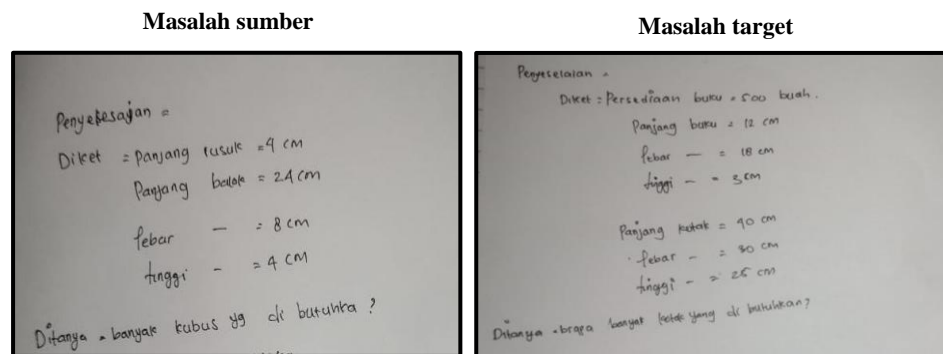 Masalah sumber
Penyelesaian =
Diket = Panjang rusuk = 4 cm
Panjang balok = 24 cm
lebar — = 8 cm
tinggi - = 4 cm
Ditanya = banyak kubus yg di butuhka ?
Masalah target
Penyeselaian =
Diket = Persediaan buku = 500 buah.
Panjang buku = 12 cm
lebar — = 18 cm
tinggi - = 3 cm
Panjang kotak = 40 cm
lebar - = 30 cm
tinggi - = 25 cm
Ditanya = brapa banyak kotak yang di butuhkan?